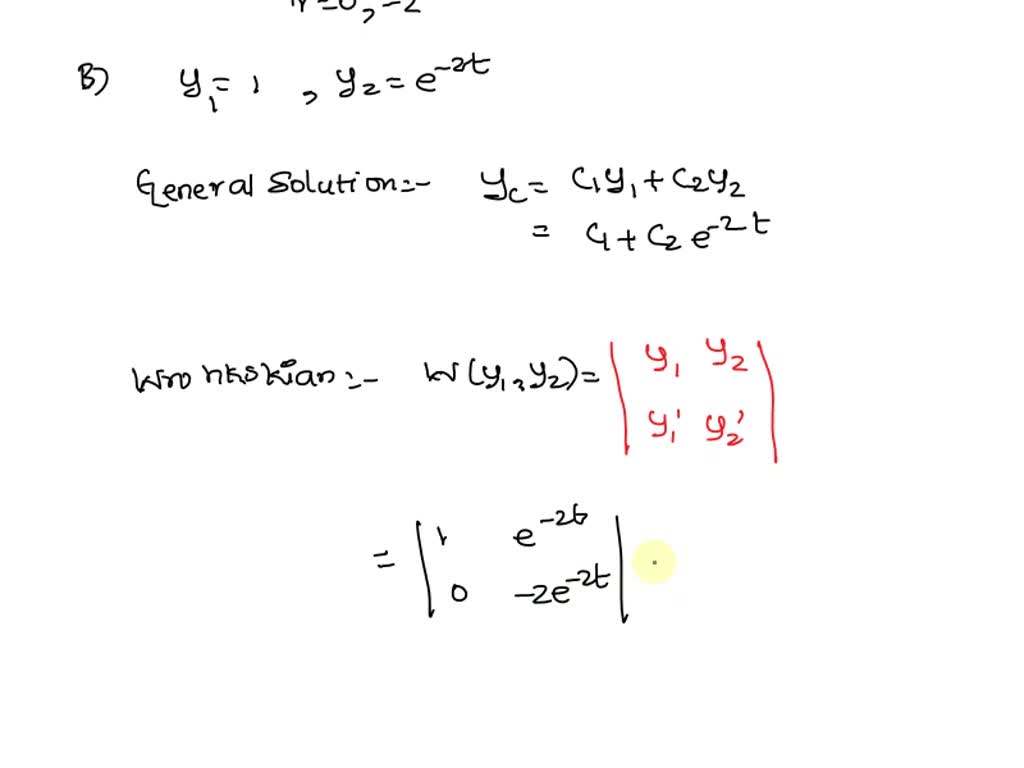 r=0,-2
B) y₁=1 , y₂=e^{-2t}
General Solution:- y_c= c₁y₁+c₂y₂
= c₁+c₂ e^{-2t}
Wronskian:- W(y₁,y₂)= | y₁ y₂ |
| y₁' y₂' |
= | 1 e^{-2t} |
| 0 -2e^{-2t} |